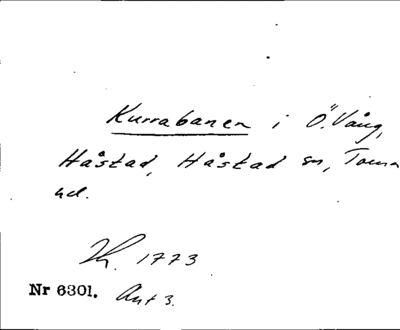 Kurrabanen i Ö. Vång,
Håstad, Håstad sn, Torna
hd.
1773
Nr 6301. Avt 3.